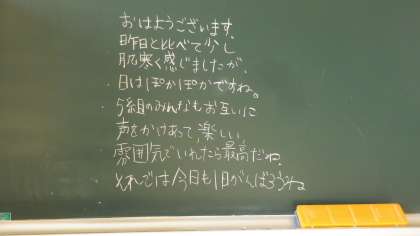 おはようございます.
昨日と比べて少し
肌寒く感じましたが、
日はぽかぽかですね。
5組のみんなもお互いに
声をかけあって楽しい
雰囲気でいれたら最高だね.
それでは今日も1日がんばろうね